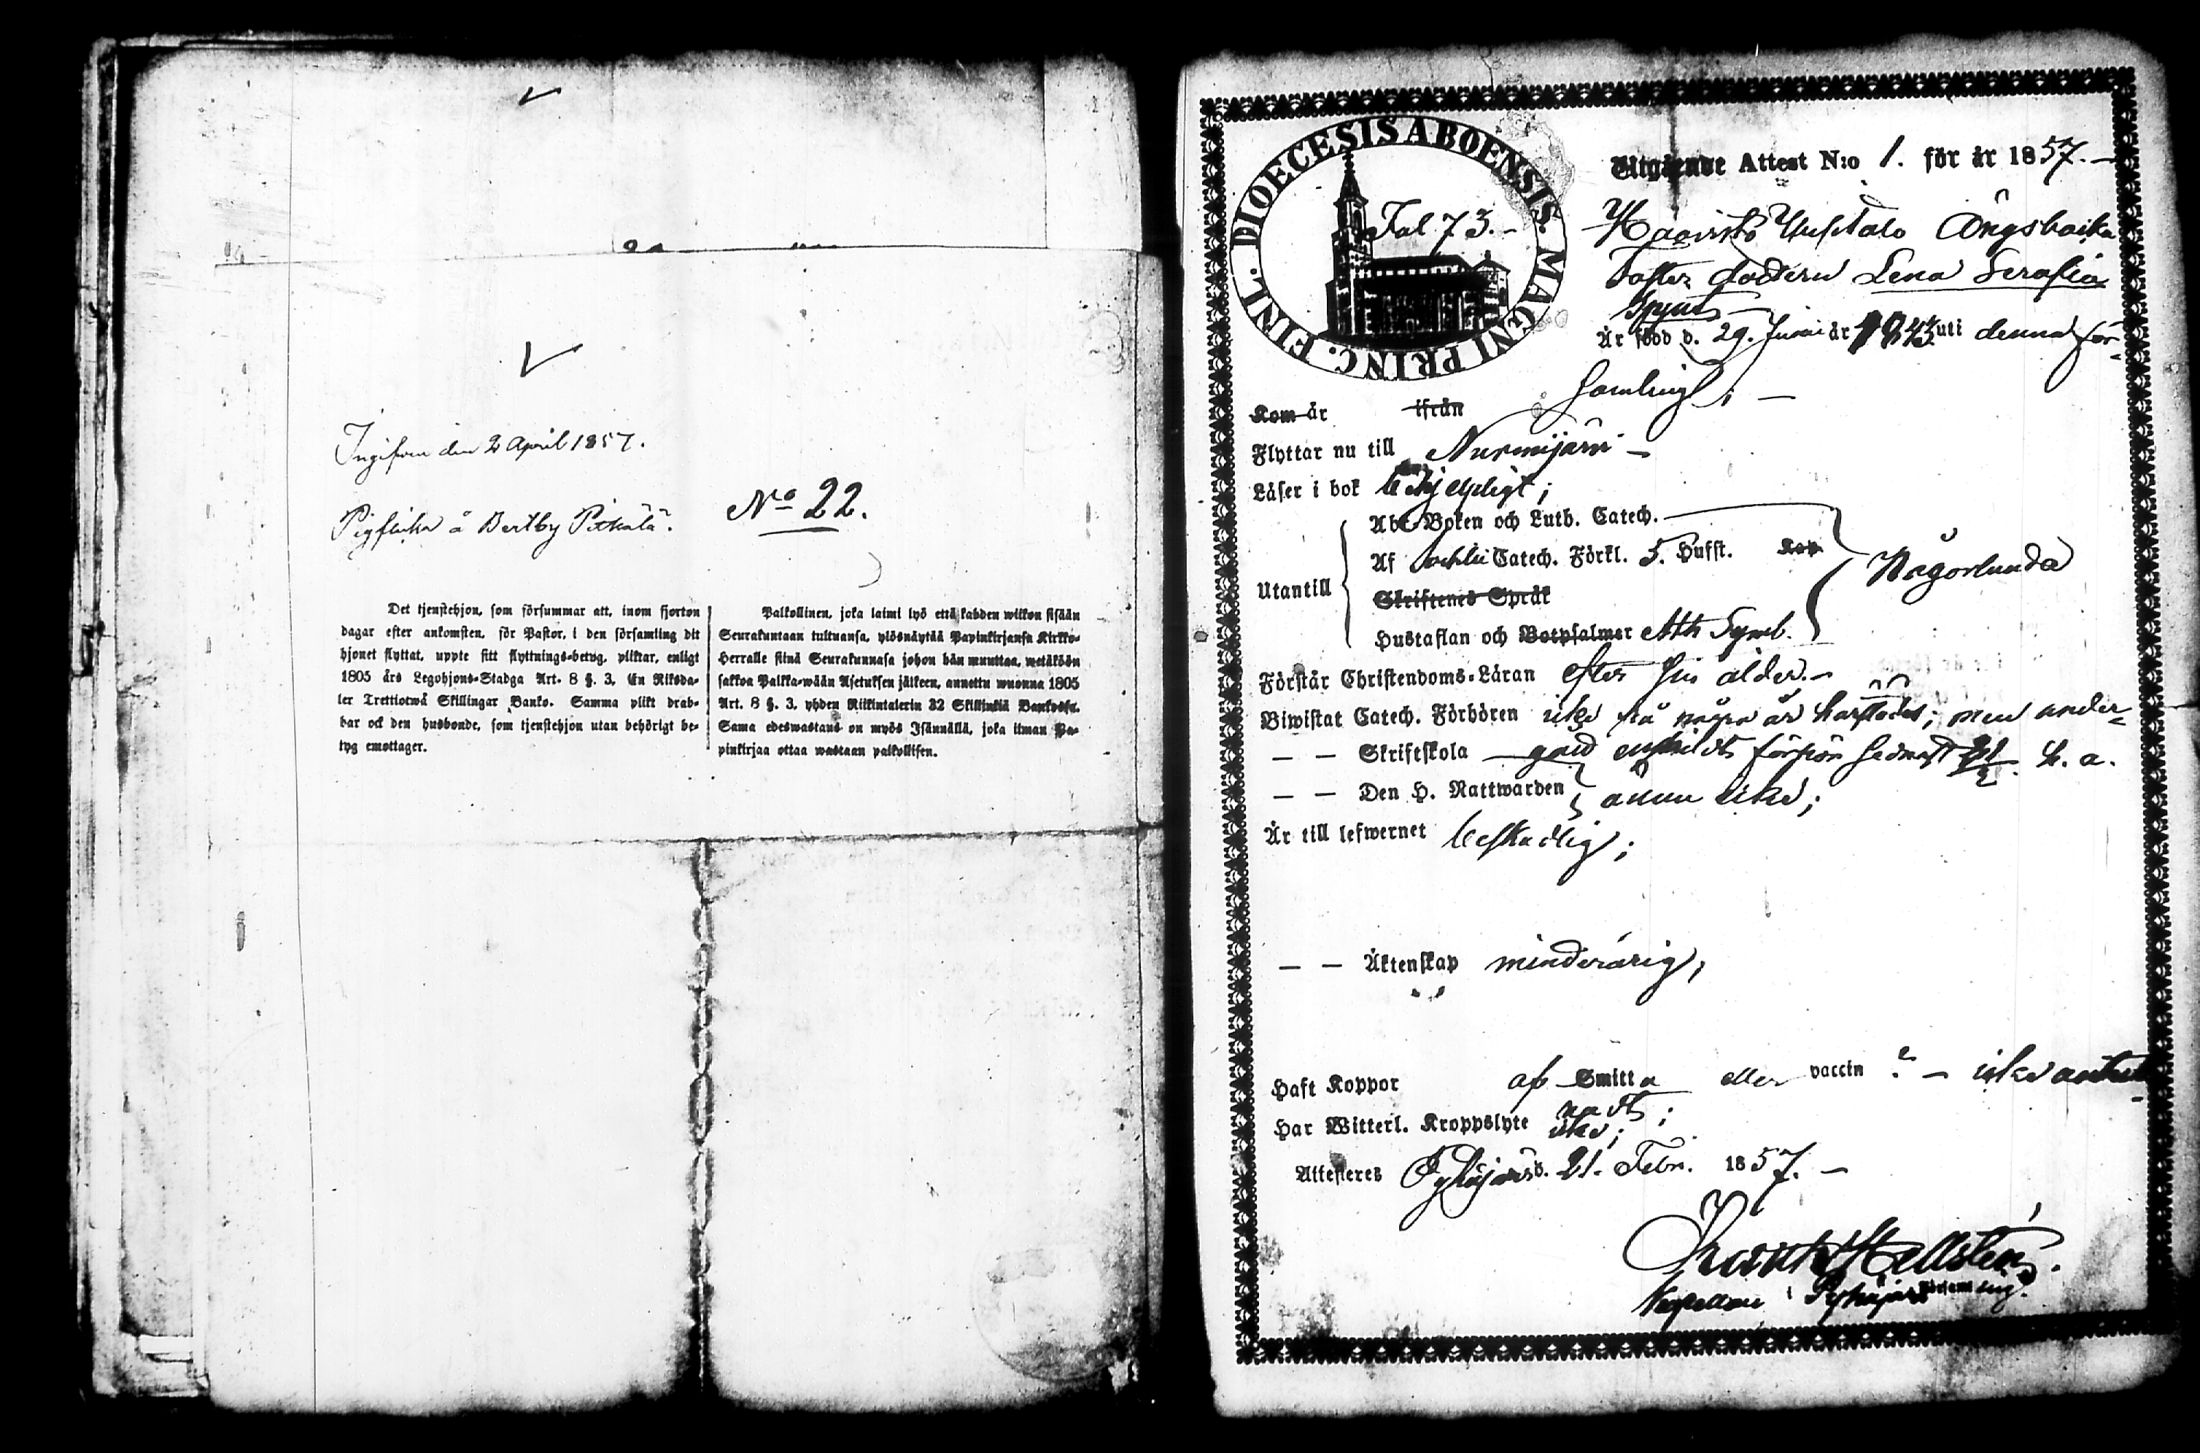 Ingifven den 2 April 1857.
No 22.
Pigflicka å Bertby Pitkälä.
Det tjenstehjon, som försummar att, inom fjorton
dagar efter ankomsten, för Pastor, i den församling dit
hjonet flyttat, uppte sitt flyttnings-betyg, pliktar, enligt
1805 års Legohjons-Stadga Art. 8 §. 3, En Riksda-
ler Trettiotwå Skillingar Banko. Samma plikt drab-
bar ock den husbonde, som tjenstehjon utan behörigt be-
tyg emottager.
Palkollinen, joka laimi lyö että kahden wiikon sisään
Seurakuntaan tultuansa, ylösnäytää Papinkirjansa Kirkko-
Herralle siinä Seurakunnasa johon hän muuttaa, wetäköön
sakkoa Palka-wään Asetuksen jälkeen, annettu wuonna 1805
Art. 8 §. 3, yhden Riikintalerin 32 Skillinkiä Bankosa.
Sama edeswastaus on myös Isännällä, joka ilman Pa-
pinkirjaa ottaa wastaan palkollisen.
DIOECESIS ABOENSIS. MAGNI PRINC. FINL.
Fol 73.
Utgående Attest N:o 1. för år 1857.
Haavisto Ylistalo
Foster dottern Lena Serafia
Är född d. 29. Junii år 1843 uti denna för-
samling;
Kom år ifrån
Flyttar nu till Nurmijärvi
Läser i bok behjelpligt;
Utantill
Abc-Boken och Luth. Catech.
Af Catech. Förkl. 5. Hufst. Kap
Någorlunda
Skriftenes Språk
Hustaflan och Botpsalmer Ath Symb.
Förstår Christendoms-Läran efter sin ålder.
Biwistat Catech. Förhören icke på några år härstädes; men under-
— — Skriftskola gått enskildt förhör sednast 21/2 h. a.
— — Den H. Nattwarden ännu icke;
Är till lefwernet beskedlig;
— — Äktenskap minderårig;
Haft Koppor af Smitta eller vaccin ? — icke anteck-
nadt;
Har Witterl. Kroppslyte icke;
Attesteres Pyhäjärvi d. 21. Febr. 1857.
Hellstén.
Kapellan i Pyhäjärvi Församling.